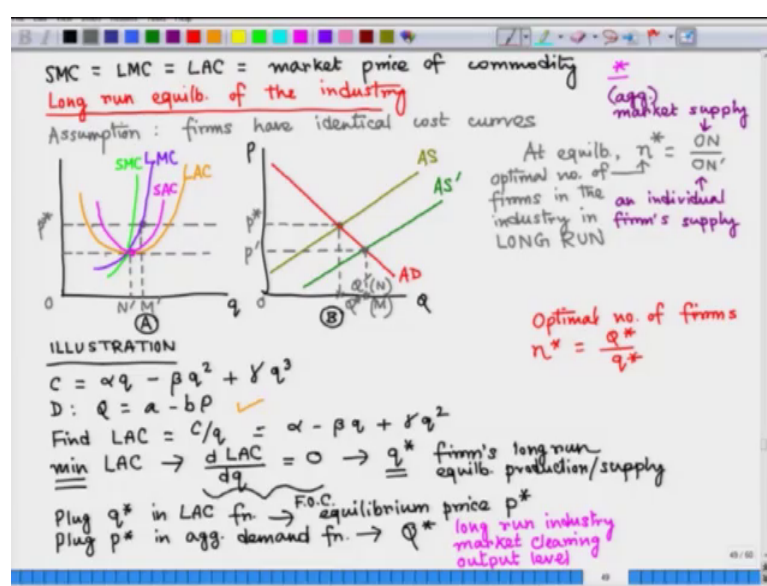 SMC = LMC = LAC = market price of commodity
Long run equilb. of the industry
Assumption : firms have identical cost curves
*
(agg.)
market supply
At equilb, n* = ON / ON'
optimal no. of
firms in the
industry in
LONG RUN
an individual
firm's supply
SMC LMC LAC
SAC
P*
O N' M' q
A
P
AS
AS'
P*
P'
AD
O Q'(N) Q
Q*(M)
B
Optimal no. of firms
n* = Q* / q*
ILLUSTRATION
C = αq - βq² + γq³
D : Q = a - bP
Find LAC = C/q = α - βq + γq²
min LAC → d LAC / dq = 0 → q* firm's long run
equilb. production/supply
F.O.C.
Plug q* in LAC fn. → equilibrium price p*
Plug p* in agg. demand fn. → Q* long run industry
market clearing
output level
49 / 60
49